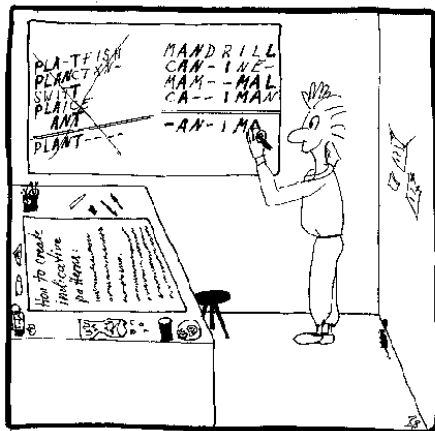 PLA-TFISH
PLANCTON-
SWIT
PLAICE
ANT
PLANT----
MANDRILL
CAN-INE-
MAM--MAL
CA--IMAN
-AN-IMA
How to create
indicative
patterns: